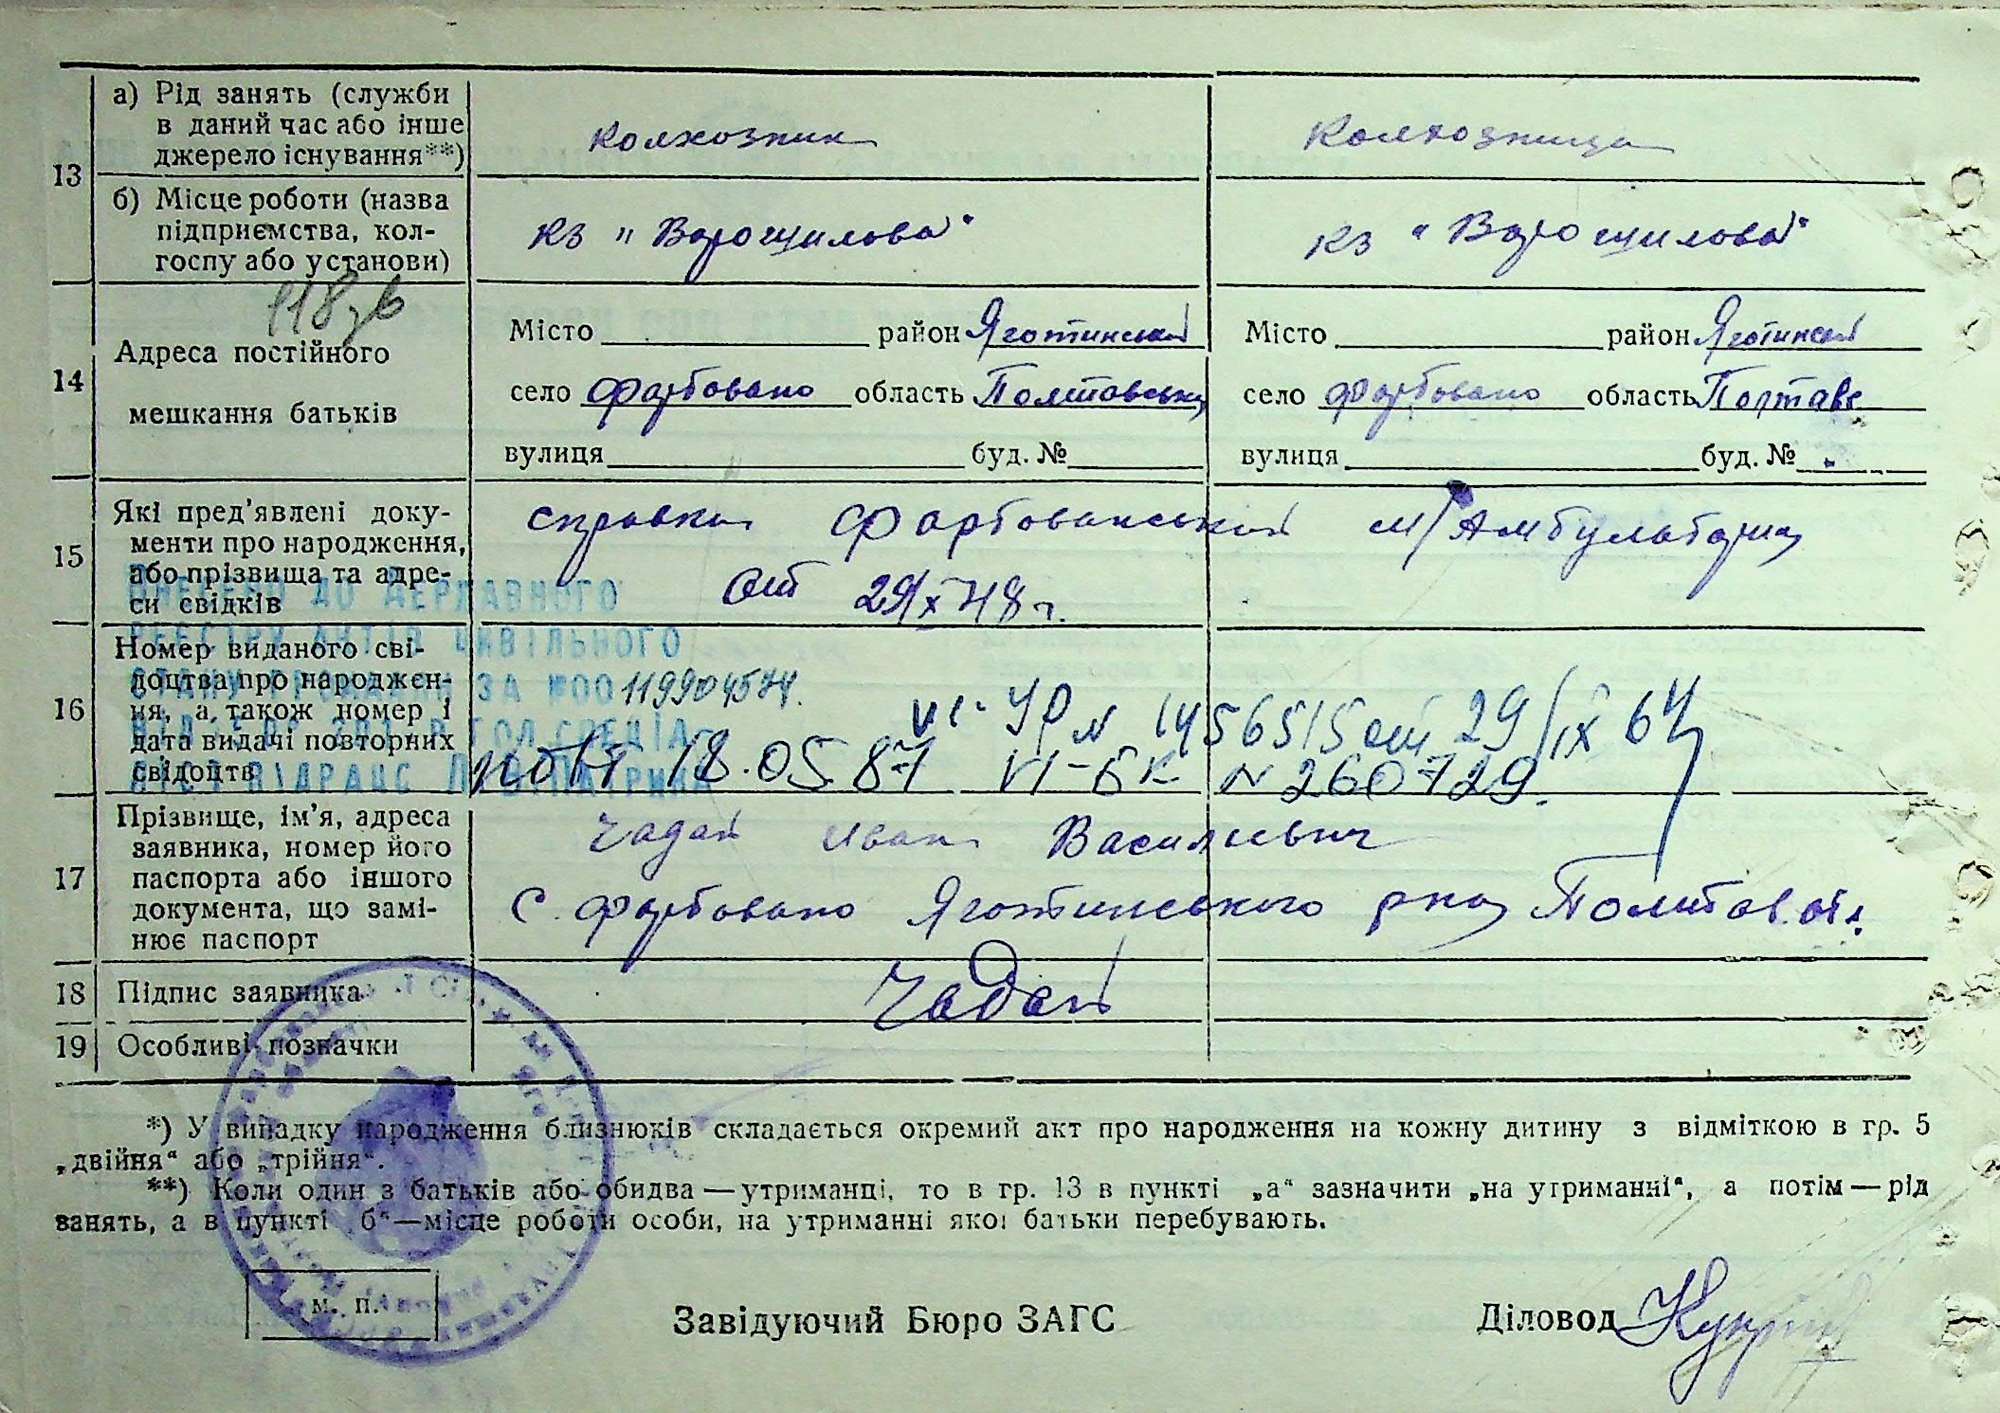 13
а) Рід занять (служби
в даний час або інше
джерело існування**)
колхозник
колхозница
б) Місце роботи (назва
підприємства, кол-
госпу або установи)
кз "Ворошилова"
кз "Ворошилова"
118
14
Адреса постійного
мешкання батьків
Місто район Яготинский
село Фарбовано область Полтавська
вулиця буд. №
Місто район Яготинский
село Фарбовано область Полтавс
вулиця буд. №
15
Які пред'явлені доку-
менти про народження,
або прізвища та адре-
си свідків
справка Фарбованський м/Амбулатории
от 29/X 48 г.
ВНЕСЕНО ДО ДЕРЖАВНОГО
РЕЄСТРУ АКТІВ ЦИВІЛЬНОГО
СТАНУ ГРОМАДЯН ЗА №00119904574.
ГОЛ.СПЕЦІА-
16
Номер виданого сві-
доцтва про народжен-
ня, а також номер і
дата видачі повторних
свідоцтв
УР N 1456515 от 29/IX 64
повт 18.05.87 VI-БК N 260729.
17
Прізвище, ім'я, адреса
заявника, номер його
паспорта або іншого
документа, що замі-
нює паспорт
Чадай Иван Васильевич
с. Фарбовано Яготинського р-на Полтав. обл.
18
Підпис заявника
Чадай
19
Особливі позначки
*) У випадку народження близнюків складається окремий акт про народження на кожну дитину з відміткою в гр. 5
„двійня“ або „трійня“.
**) Коли один з батьків або обидва — утриманці, то в гр. 13 в пункті „а“ зазначити „на утриманні“, а потім — рід
занять, а в пункті „б“ — місце роботи особи, на утриманні якої батьки перебувають.
м. п.
Завідуючий Бюро ЗАГС
Діловод